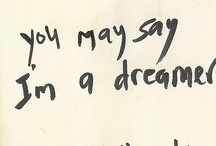 you may say
I'm a dreamer